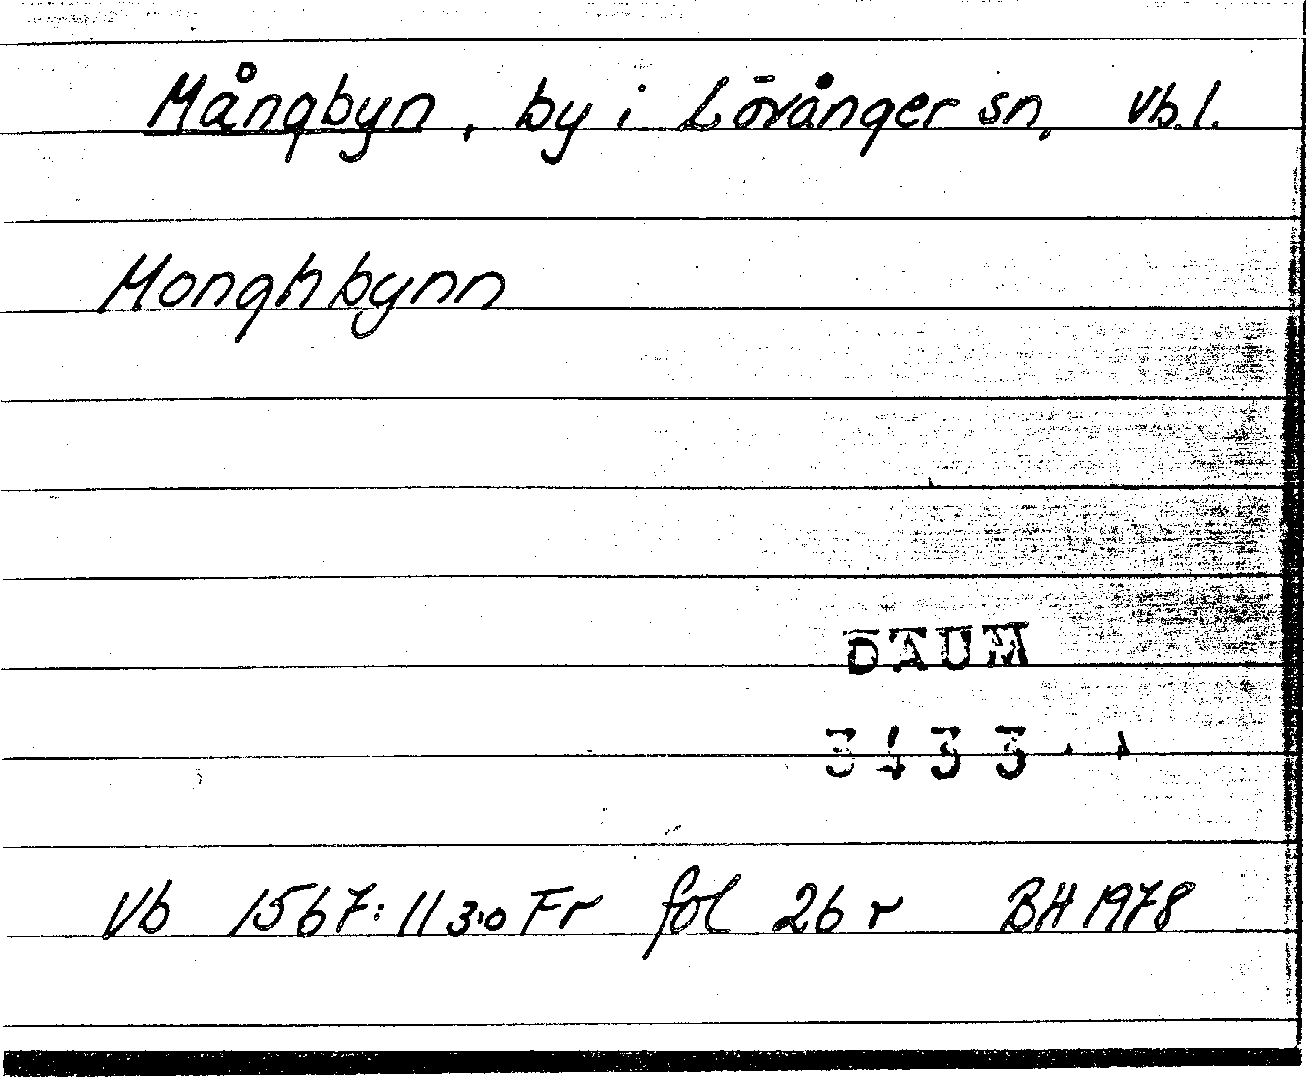 Mångbyn, by i Lövånger sn. Vb.l.
Monghbynn
DAUM
3433
Vb 1567:11 3:o Fr fol 26 r BH 1978